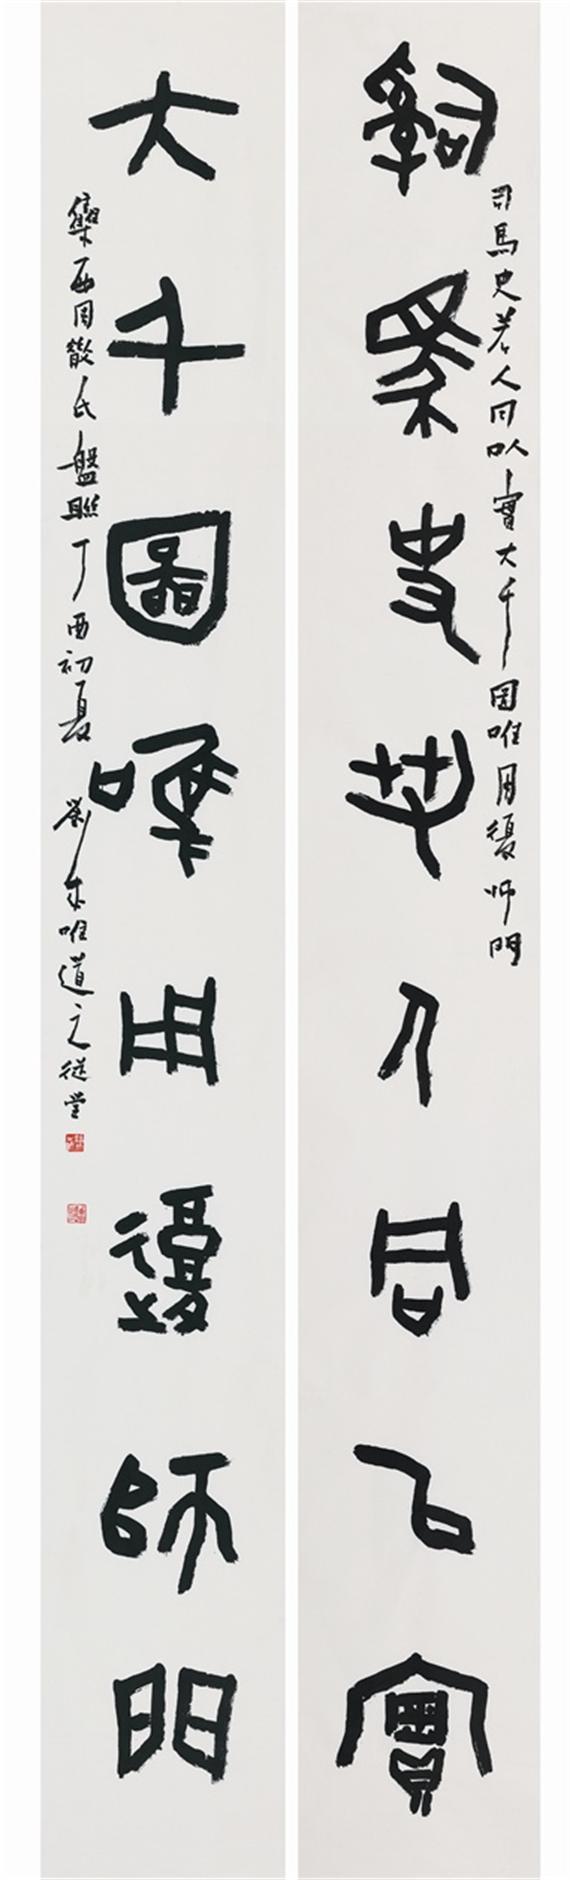 司馬史若人同以實大千圖唯用復師門
司馬史若人同以實
大千圖唯用復師門
集西周散氏盤聯丁酉初夏 劉 唯道之從堂